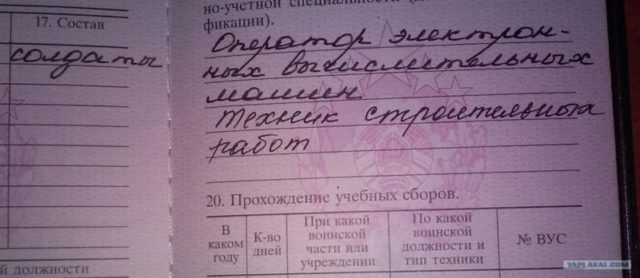 17. Состав
солдаты
но-учетной специальности (
фикации).
Оператор электрон-
ных вычислительных
машин
Техник строительных
работ
20. Прохождение учебных сборов.
В каком году
К-во дней
При какой воинской части или учреждении
По какой воинской должности и тип техники
№ ВУС
й должности
YAPLAKAL.COM